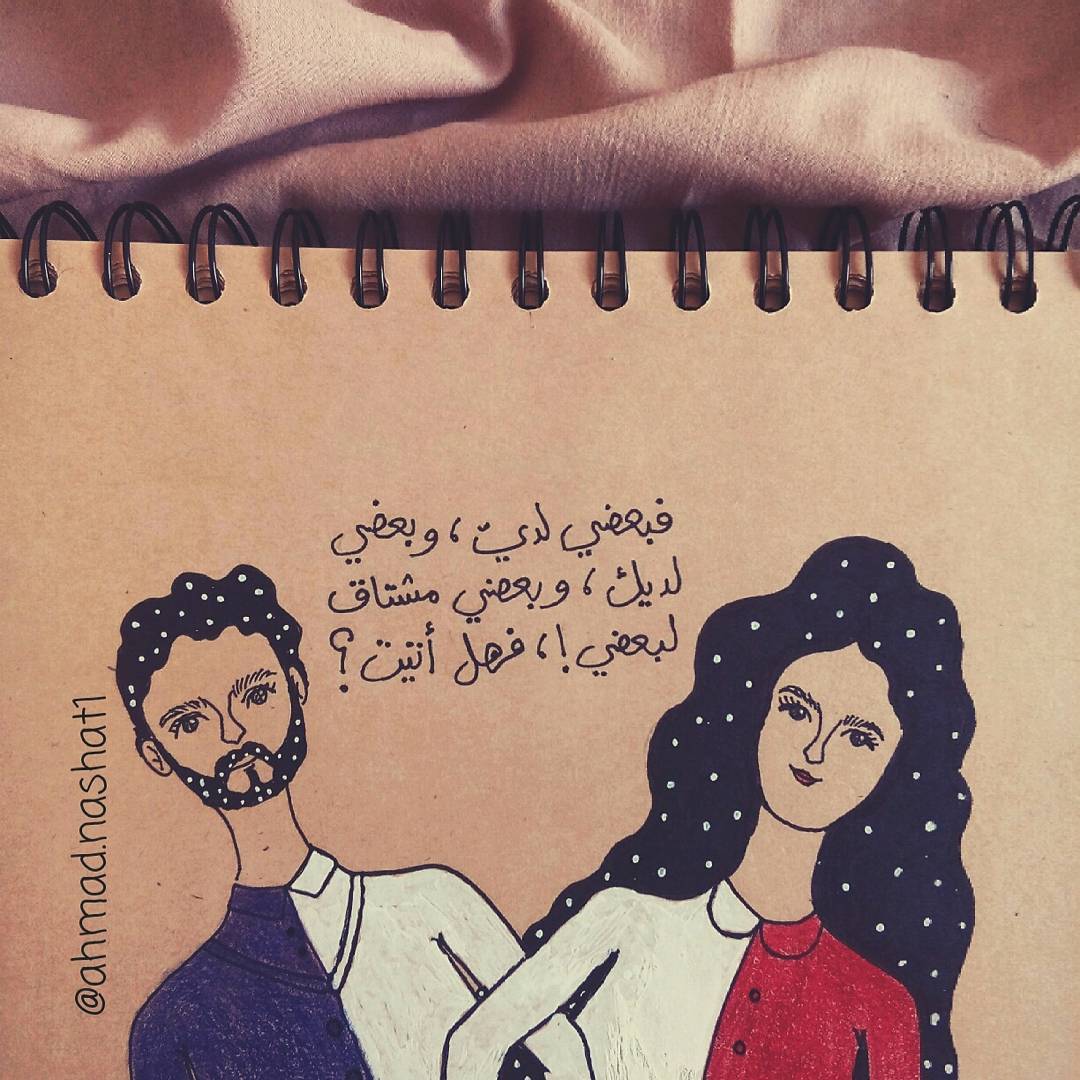 فبعضي لديّ ، وبعضي
لديك ، وبعضي مشتاق
لبعضي ! ، فهل أتيت ؟
@ahmad.nashat1